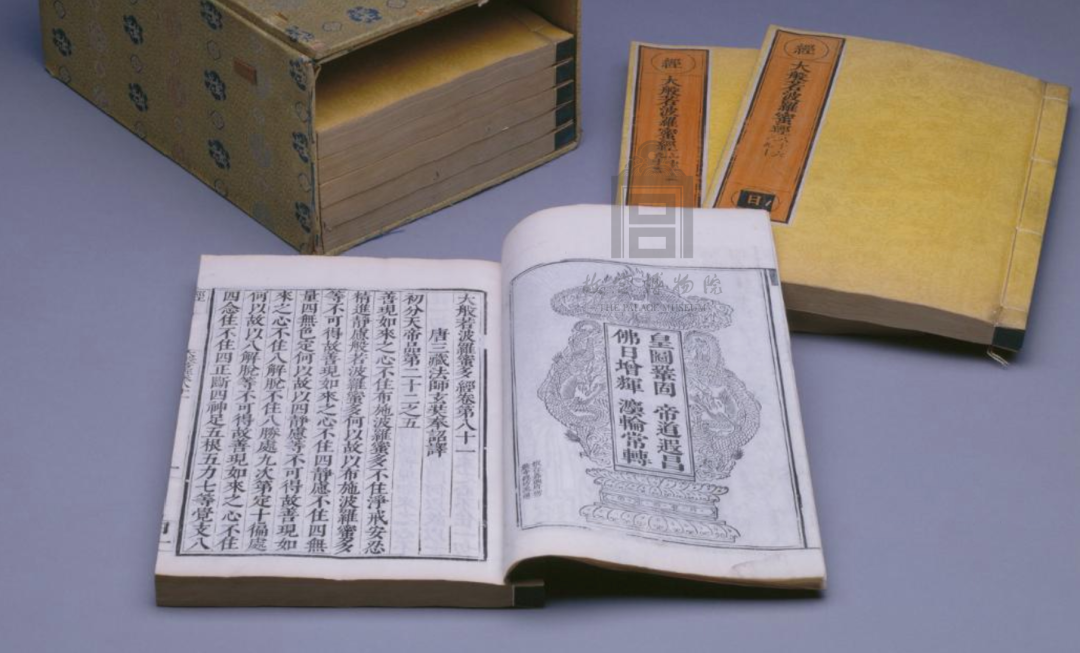 經
大般若波羅蜜經
經
大般若波羅蜜經
故宮博物院
THE PALACE MUSEUM
皇圖鞏固 帝道遐昌
佛日增輝 灋輪常轉
大般若波羅蜜多經卷第八十一
唐三藏法師玄奘奉 詔譯
初分天帝品第二十二之五
善現如來之心不住布施波羅蜜多不住淨戒安忍
精進靜慮般若波羅蜜多何以故以布施波羅蜜多
等不可得故善現如來之心不住四靜慮不住四無
量四無色定何以故以四靜慮等不可得故善現如
來之心不住八解脫不住八勝處九次第定十徧處
何以故以八解脫等不可得故善現如來之心不住
四念住不住四正斷四神足五根五力七等覺支八